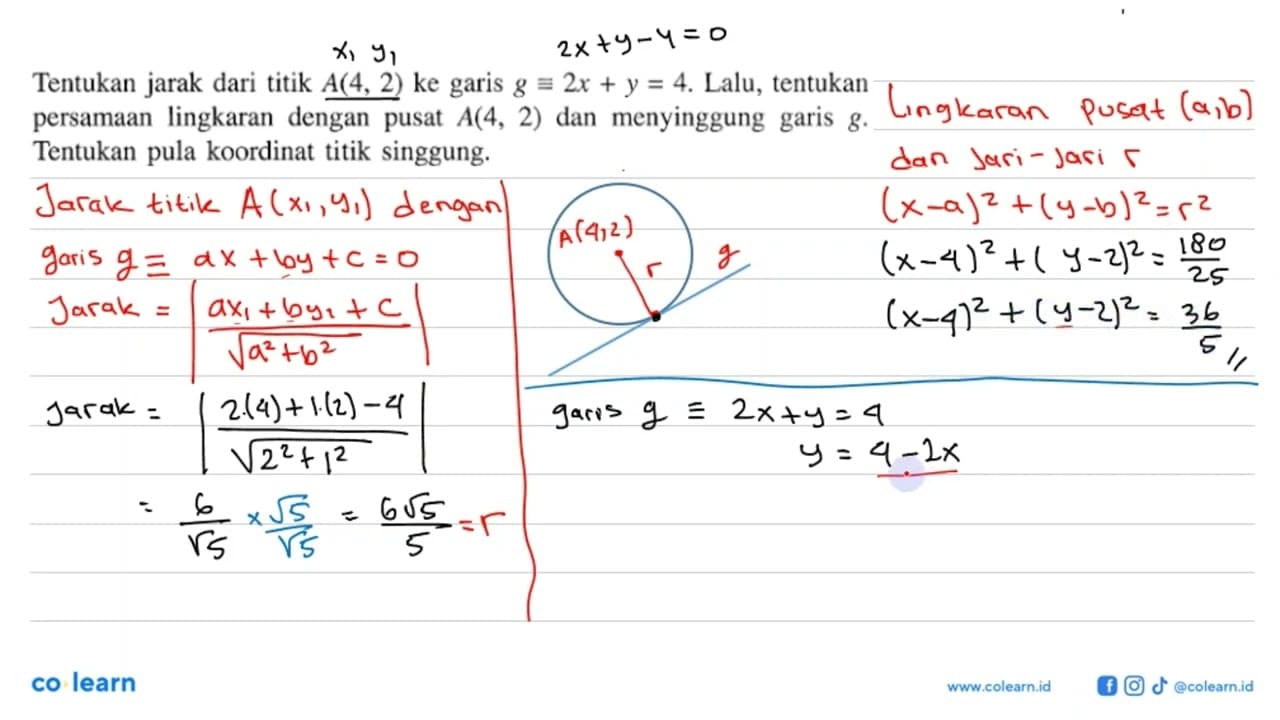 x₁ y₁
2x+y-4=0
Tentukan jarak dari titik A(4, 2) ke garis g ≡ 2x + y = 4. Lalu, tentukan
persamaan lingkaran dengan pusat A(4, 2) dan menyinggung garis g.
Tentukan pula koordinat titik singgung.
Jarak titik A(x₁,y₁) dengan
garis g ≡ ax+by+c=0
Jarak = |(ax₁+by₁+c)/√(a²+b²)|
Jarak = |(2.(4)+1.(2)-4)/√(2²+1²)|
= 6/√5 × √5/√5 = 6√5/5 = r
A(4,2)
r
g
Lingkaran pusat (a,b)
dan Jari-Jari r
(x-a)²+(y-b)²=r²
(x-4)²+(y-2)²=180/25
(x-4)²+(y-2)²=36/5 //
garis g ≡ 2x+y=4
y = 4-2x
co learn
www.colearn.id
@colearn.id